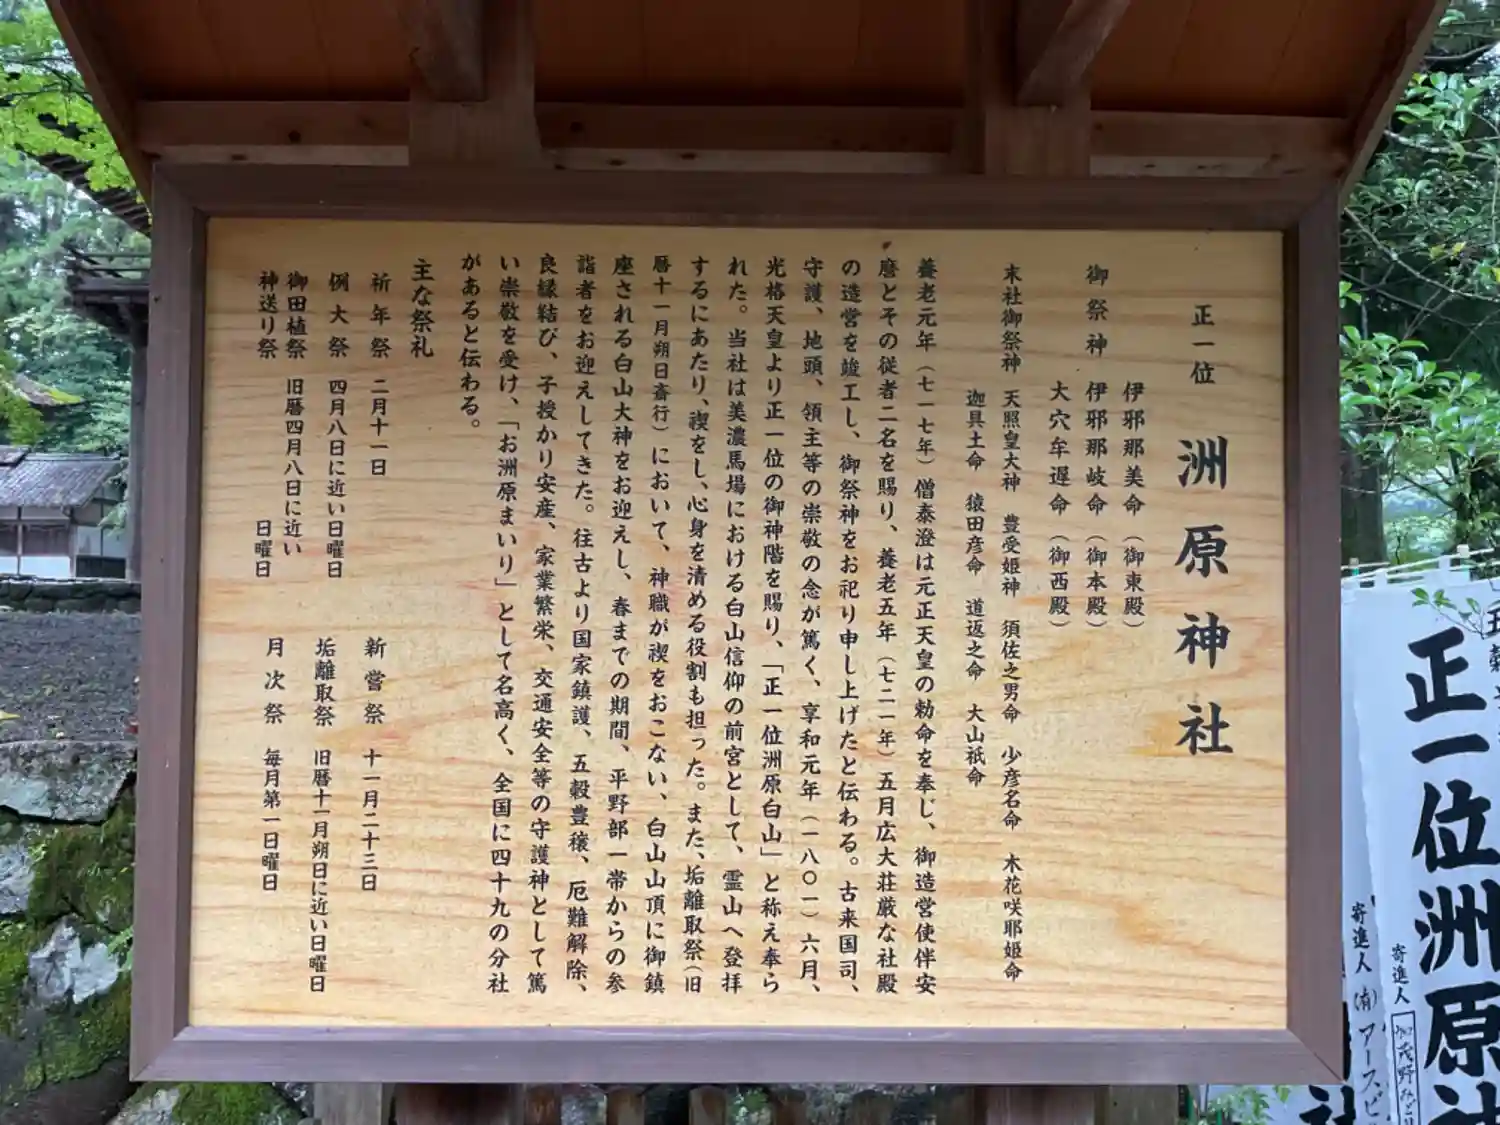 正一位 洲原神社
御祭神 伊邪那美命（御東殿）
伊邪那岐命（御本殿）
大穴牟遅命（御西殿）
末社御祭神 天照皇大神 豊受姫神 須佐之男命 少彦名命 木花咲耶姫命
迦具土命 猿田彦命 道返之命 大山祇命
養老元年（七一七年）僧泰澄は元正天皇の勅命を奉じ、御造営使伴安
麿とその従者二名を賜り、養老五年（七二一年）五月広大荘厳な社殿
の造営を竣工し、御祭神をお祀り申し上げたと伝わる。古来国司、
守護、地頭、領主等の崇敬の念が篤く、享和元年（一八〇一）六月、
光格天皇より正一位の御神階を賜り、「正一位洲原白山」と称え奉ら
れた。当社は美濃馬場における白山信仰の前宮として、霊山へ登拝
するにあたり、禊をし、心身を清める役割も担った。また、垢離取祭（旧
暦十一月朔日斎行）において、神職が禊をおこない、白山山頂に御鎮
座される白山大神をお迎えし、春までの期間、平野部一帯からの参
詣者をお迎えしてきた。往古より国家鎮護、五穀豊穣、厄難解除、
良縁結び、子授かり安産、家業繁栄、交通安全等の守護神として篤
い崇敬を受け、「お洲原まいり」として名高く、全国に四十九の分社
があると伝わる。
主な祭礼
祈年祭 二月十一日
例大祭 四月八日に近い日曜日
御田植祭 旧暦四月八日に近い
神送り祭 日曜日
新嘗祭 十一月二十三日
垢離取祭 旧暦十一月朔日に近い日曜日
月次祭 毎月第一日曜日
正一位洲原神社
寄進人
寄進人 （有）アースビ